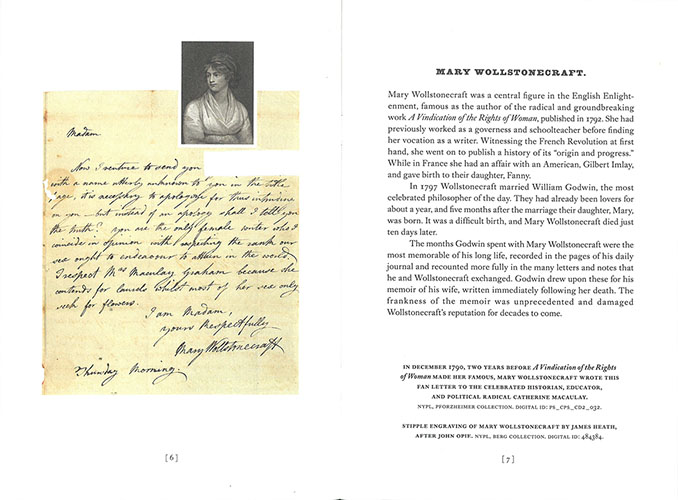 Madam
Now I venture to send you
with a name utterly unknown to you in the title
page, it is necessary to apologize for thus intruding
on you — but instead of an apology shall I tell you
the truth? you are the only female writer who I
coincide in opinion with respecting the rank our
sex ought to endeavour to attain in the world.
I respect Mrs Macaulay Graham because she
contends for laurels whilst most of her sex only
seek for flowers.
I am Madam,
yours Respectfully
Mary Wollstonecraft
Thursday Morning.
[6]
MARY WOLLSTONECRAFT.
Mary Wollstonecraft was a central figure in the English Enlight-
enment, famous as the author of the radical and groundbreaking
work A Vindication of the Rights of Woman, published in 1792. She had
previously worked as a governess and schoolteacher before finding
her vocation as a writer. Witnessing the French Revolution at first
hand, she went on to publish a history of its “origin and progress.”
While in France she had an affair with an American, Gilbert Imlay,
and gave birth to their daughter, Fanny.
In 1797 Wollstonecraft married William Godwin, the most
celebrated philosopher of the day. They had already been lovers for
about a year, and five months after the marriage their daughter, Mary,
was born. It was a difficult birth, and Mary Wollstonecraft died just
ten days later.
The months Godwin spent with Mary Wollstonecraft were the
most memorable of his long life, recorded in the pages of his daily
journal and recounted more fully in the many letters and notes that
he and Wollstonecraft exchanged. Godwin drew upon these for his
memoir of his wife, written immediately following her death. The
frankness of the memoir was unprecedented and damaged
Wollstonecraft’s reputation for decades to come.
IN DECEMBER 1790, TWO YEARS BEFORE A Vindication of the Rights
of Woman MADE HER FAMOUS, MARY WOLLSTONECRAFT WROTE THIS
FAN LETTER TO THE CELEBRATED HISTORIAN, EDUCATOR,
AND POLITICAL RADICAL CATHERINE MACAULAY.
NYPL, PFORZHEIMER COLLECTION. DIGITAL ID: PS_CPS_CD2_032.
STIPPLE ENGRAVING OF MARY WOLLSTONECRAFT BY JAMES HEATH,
AFTER JOHN OPIE. NYPL, BERG COLLECTION. DIGITAL ID: 484384.
[7]